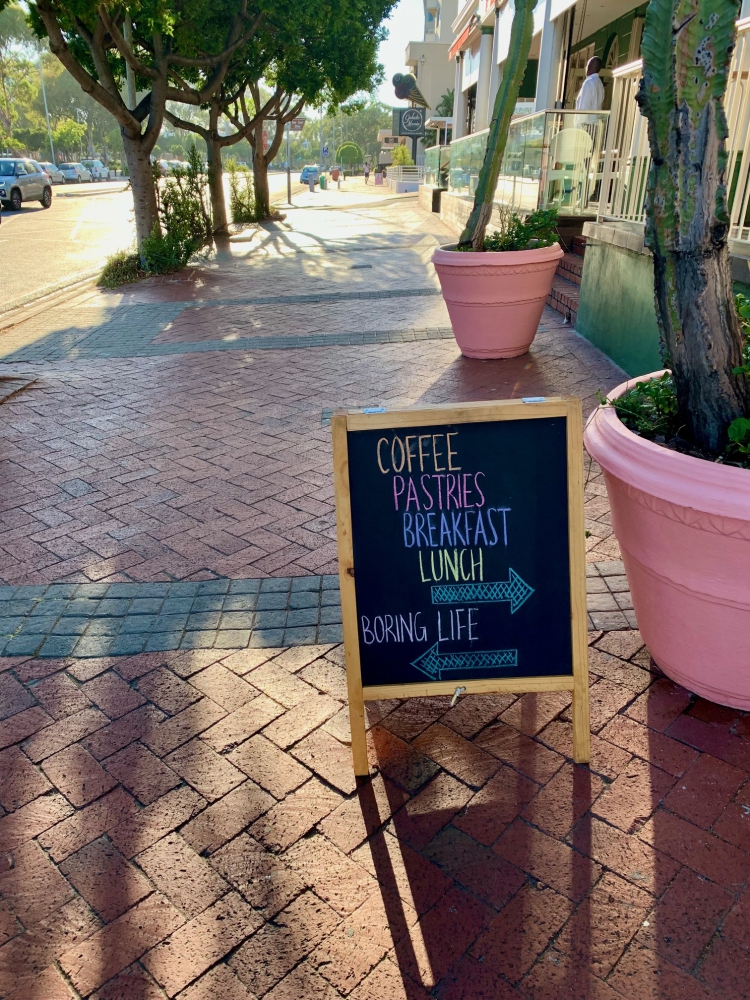 COFFEE
PASTRIES
BREAKFAST
LUNCH
BORING LIFE